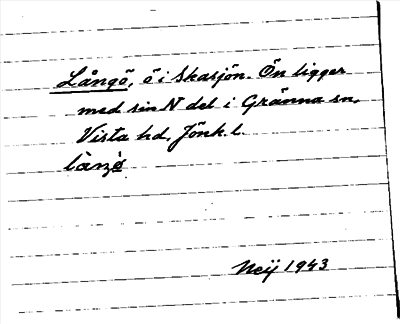 Långö, ö i Skasjön. Ön ligger
med sin N del i Gränna sn,
Vista hd, Jönk. l.
Neij 1943